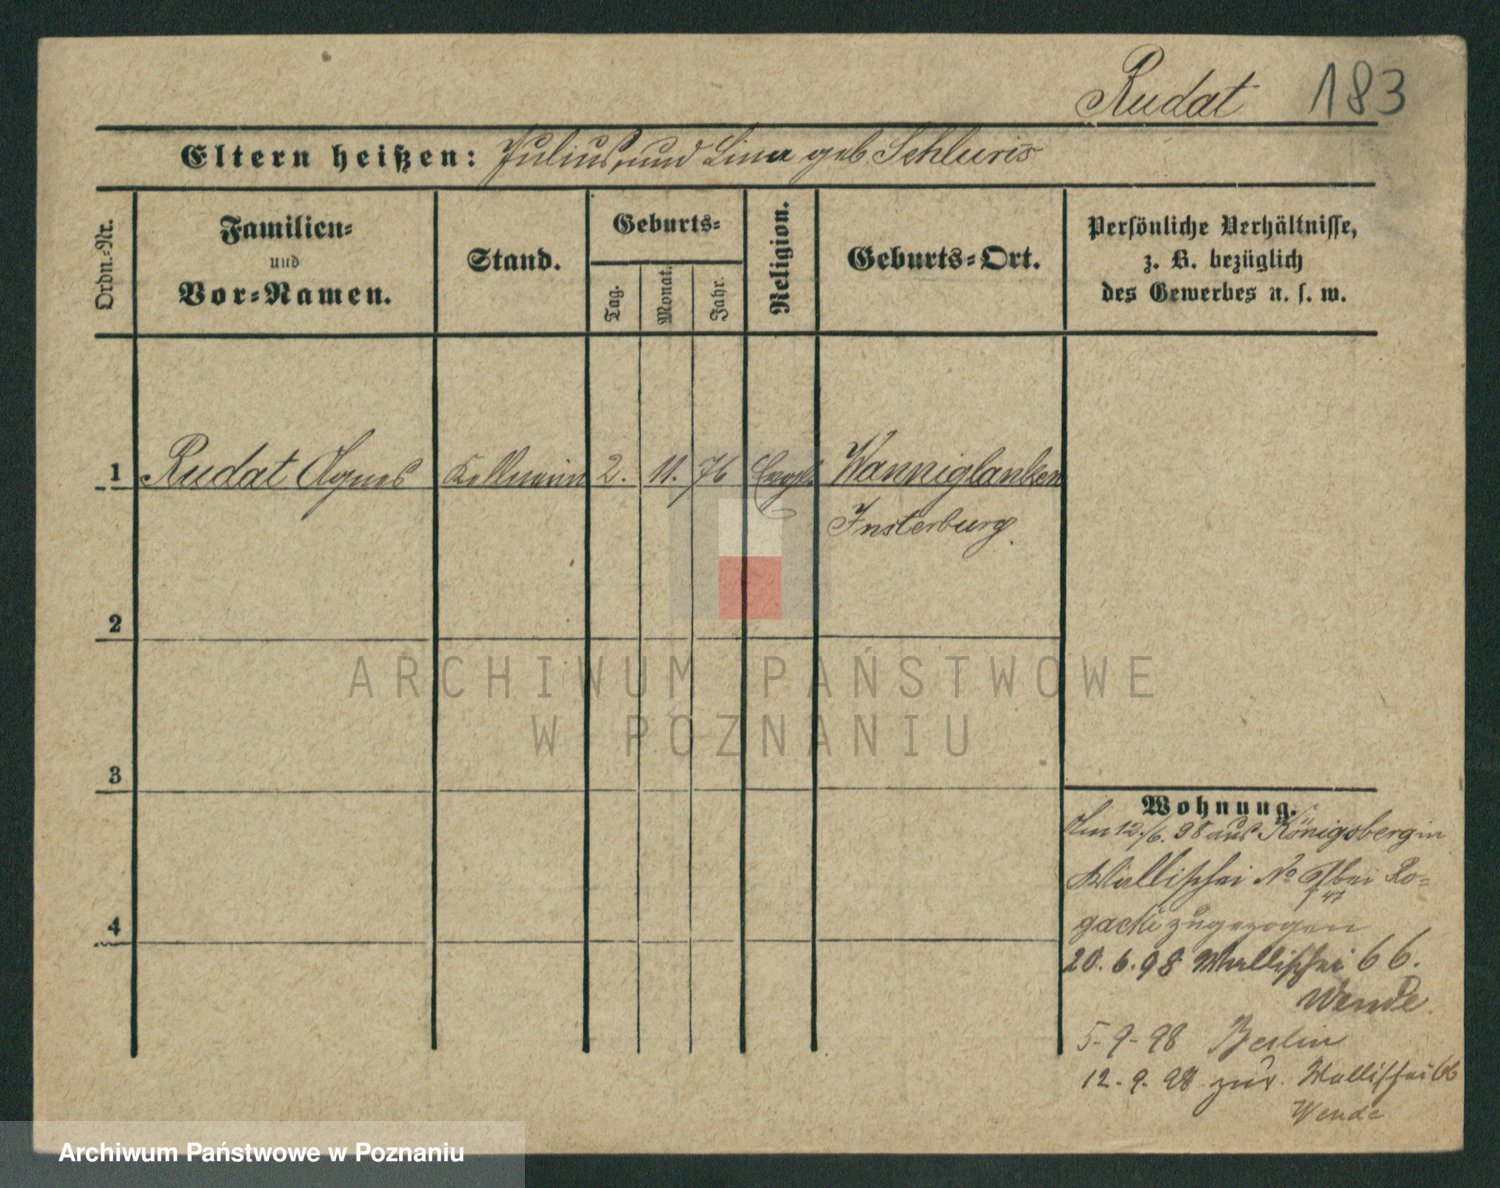 Rudat 183
Eltern heißen: Julius und Lina geb Schluris
Ordn.-Nr.
Familien-
und
Vor-Namen.
Stand.
Geburts-
Tag.
Monat.
Jahr.
Religion.
Geburts-Ort.
Persönliche Verhältnisse,
z. B. bezüglich
des Gewerbes u. s. w.
1 Rudat Agnes Kellnerin 2. 11. 76 Evgl. Wanniglauken
Insterburg.
2
3
4
Wohnung.
Am 12./6. 98 aus Königsberg in
Wallischei No bei Ro-
47
gacki zugezogen
20. 6. 98 Wallischei 66.
Wende.
5-9-98 Berlin
12-9-98 zur. Wallischei 66
Wende
ARCHIWUM PAŃSTWOWE
W POZNANIU
Archiwum Państwowe w Poznaniu